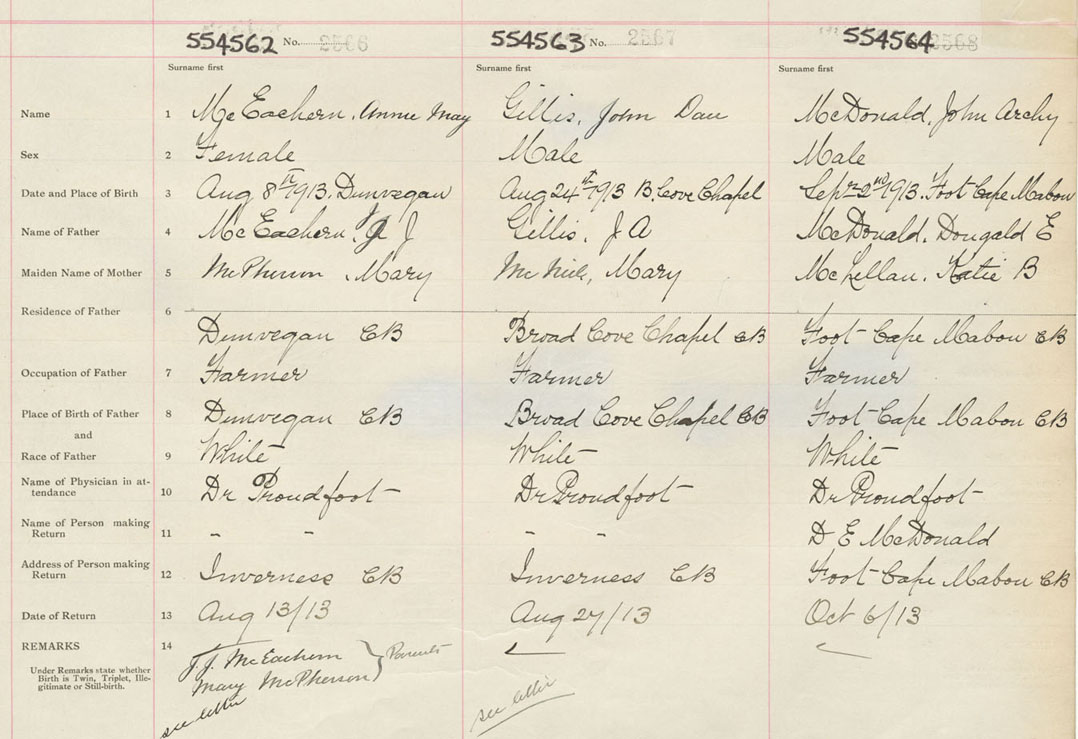 554562 No. 2566 554563 No. 2567 554564 2568
Surname first Surname first Surname first
Name 1 McEachern, Annie May Gillis, John Dan McDonald, John Archy
Sex 2 Female Male Male
Date and Place of Birth 3 Aug 8th 1913. Dunvegan Aug 24th 1913 B. Cove Chapel Sepr 2nd 1913. Foot Cape Mabou
Name of Father 4 McEachern, J J Gillis, J A McDonald, Dougald E
Maiden Name of Mother 5 McPherson, Mary Mary McLellan, Katie B
Residence of Father 6
Dunvegan CB Broad Cove Chapel CB Foot Cape Mabou CB
Occupation of Father 7 Farmer Farmer Farmer
Place of Birth of Father 8 Dunvegan CB Broad Cove Chapel CB Foot Cape Mabou CB
and
Race of Father 9 White White White
Name of Physician in at-
tendance 10 Dr Proudfoot Dr Proudfoot Dr Proudfoot
Name of Person making
Return 11 - - - - D E McDonald
Address of Person making
Return 12 Inverness CB Inverness CB Foot Cape Mabou CB
Date of Return 13 Aug 13/13 Aug 27/13 Oct 6/13
REMARKS 14
J. J. McEachern } Parents
Under Remarks state whether
Birth is Twin, Triplet, Ille-
gitimate or Still-birth.
Mary McPherson
see letter see letter